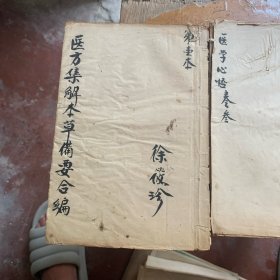 医方集解本草備要合编
第壹本
徐筱珍
医学心悟 卷叁